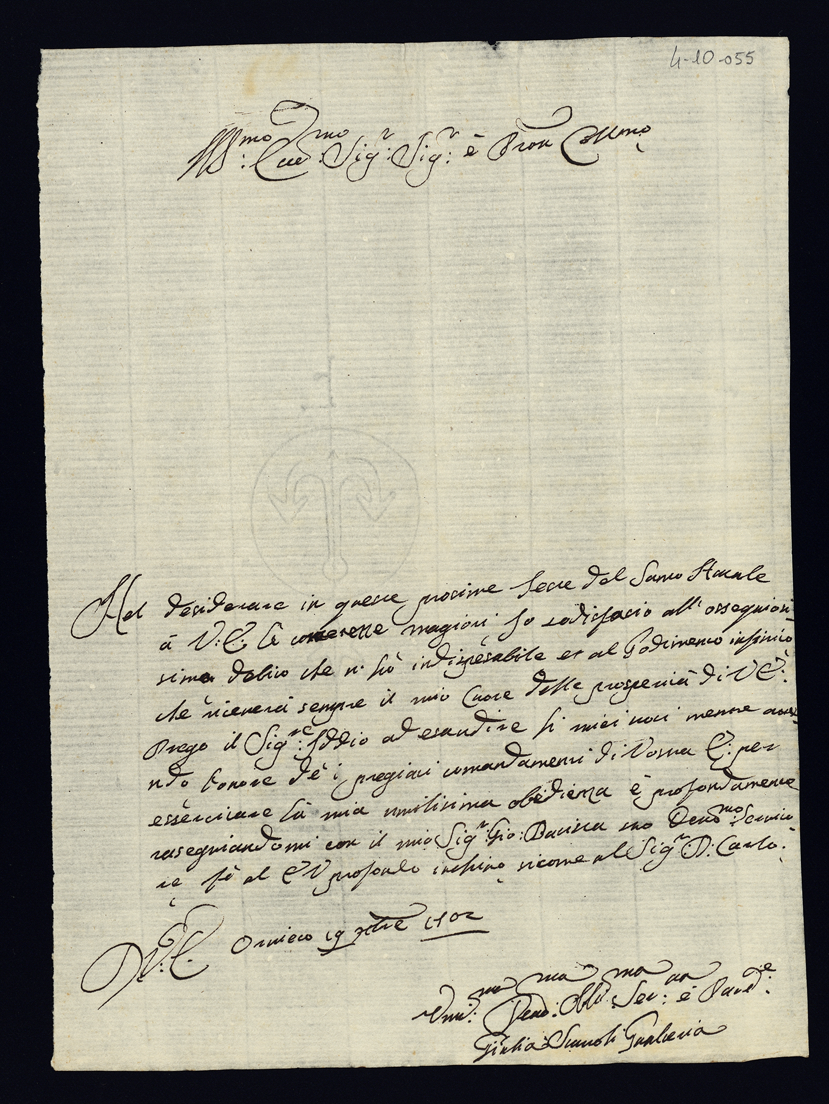 4-10-055
Ill:mo Ecc:mo Sig:r Sig:r è Pron Collmo
Nel desiderare in queste procime feste del Santo Natale
à V: E: le contentezze magiori so sodisfacio all' ossequiosi
simo debito che n' hò indispesabile et al godimento infinito
che riceverà sempre il mio Cuore delle prosperità di V E:
Prego il Sig:re Iddio ad esaudire li miei voti mentre
ndo l'onore de i pregiati comandamenti di Vostra E: per
essercitare la mia umilisima obedienza è profondamente
rasegniandomi con il mio Sig:r Gio: Batista suo Devo:mo Servito
re fò al E V profondo inchino sicome al Sig:r D: Carlo:
D V: E: Orvieto 19 Xbre 1702
Umi:ma Devo:ma Obli:ma Ser:va è Parte:
Giulia